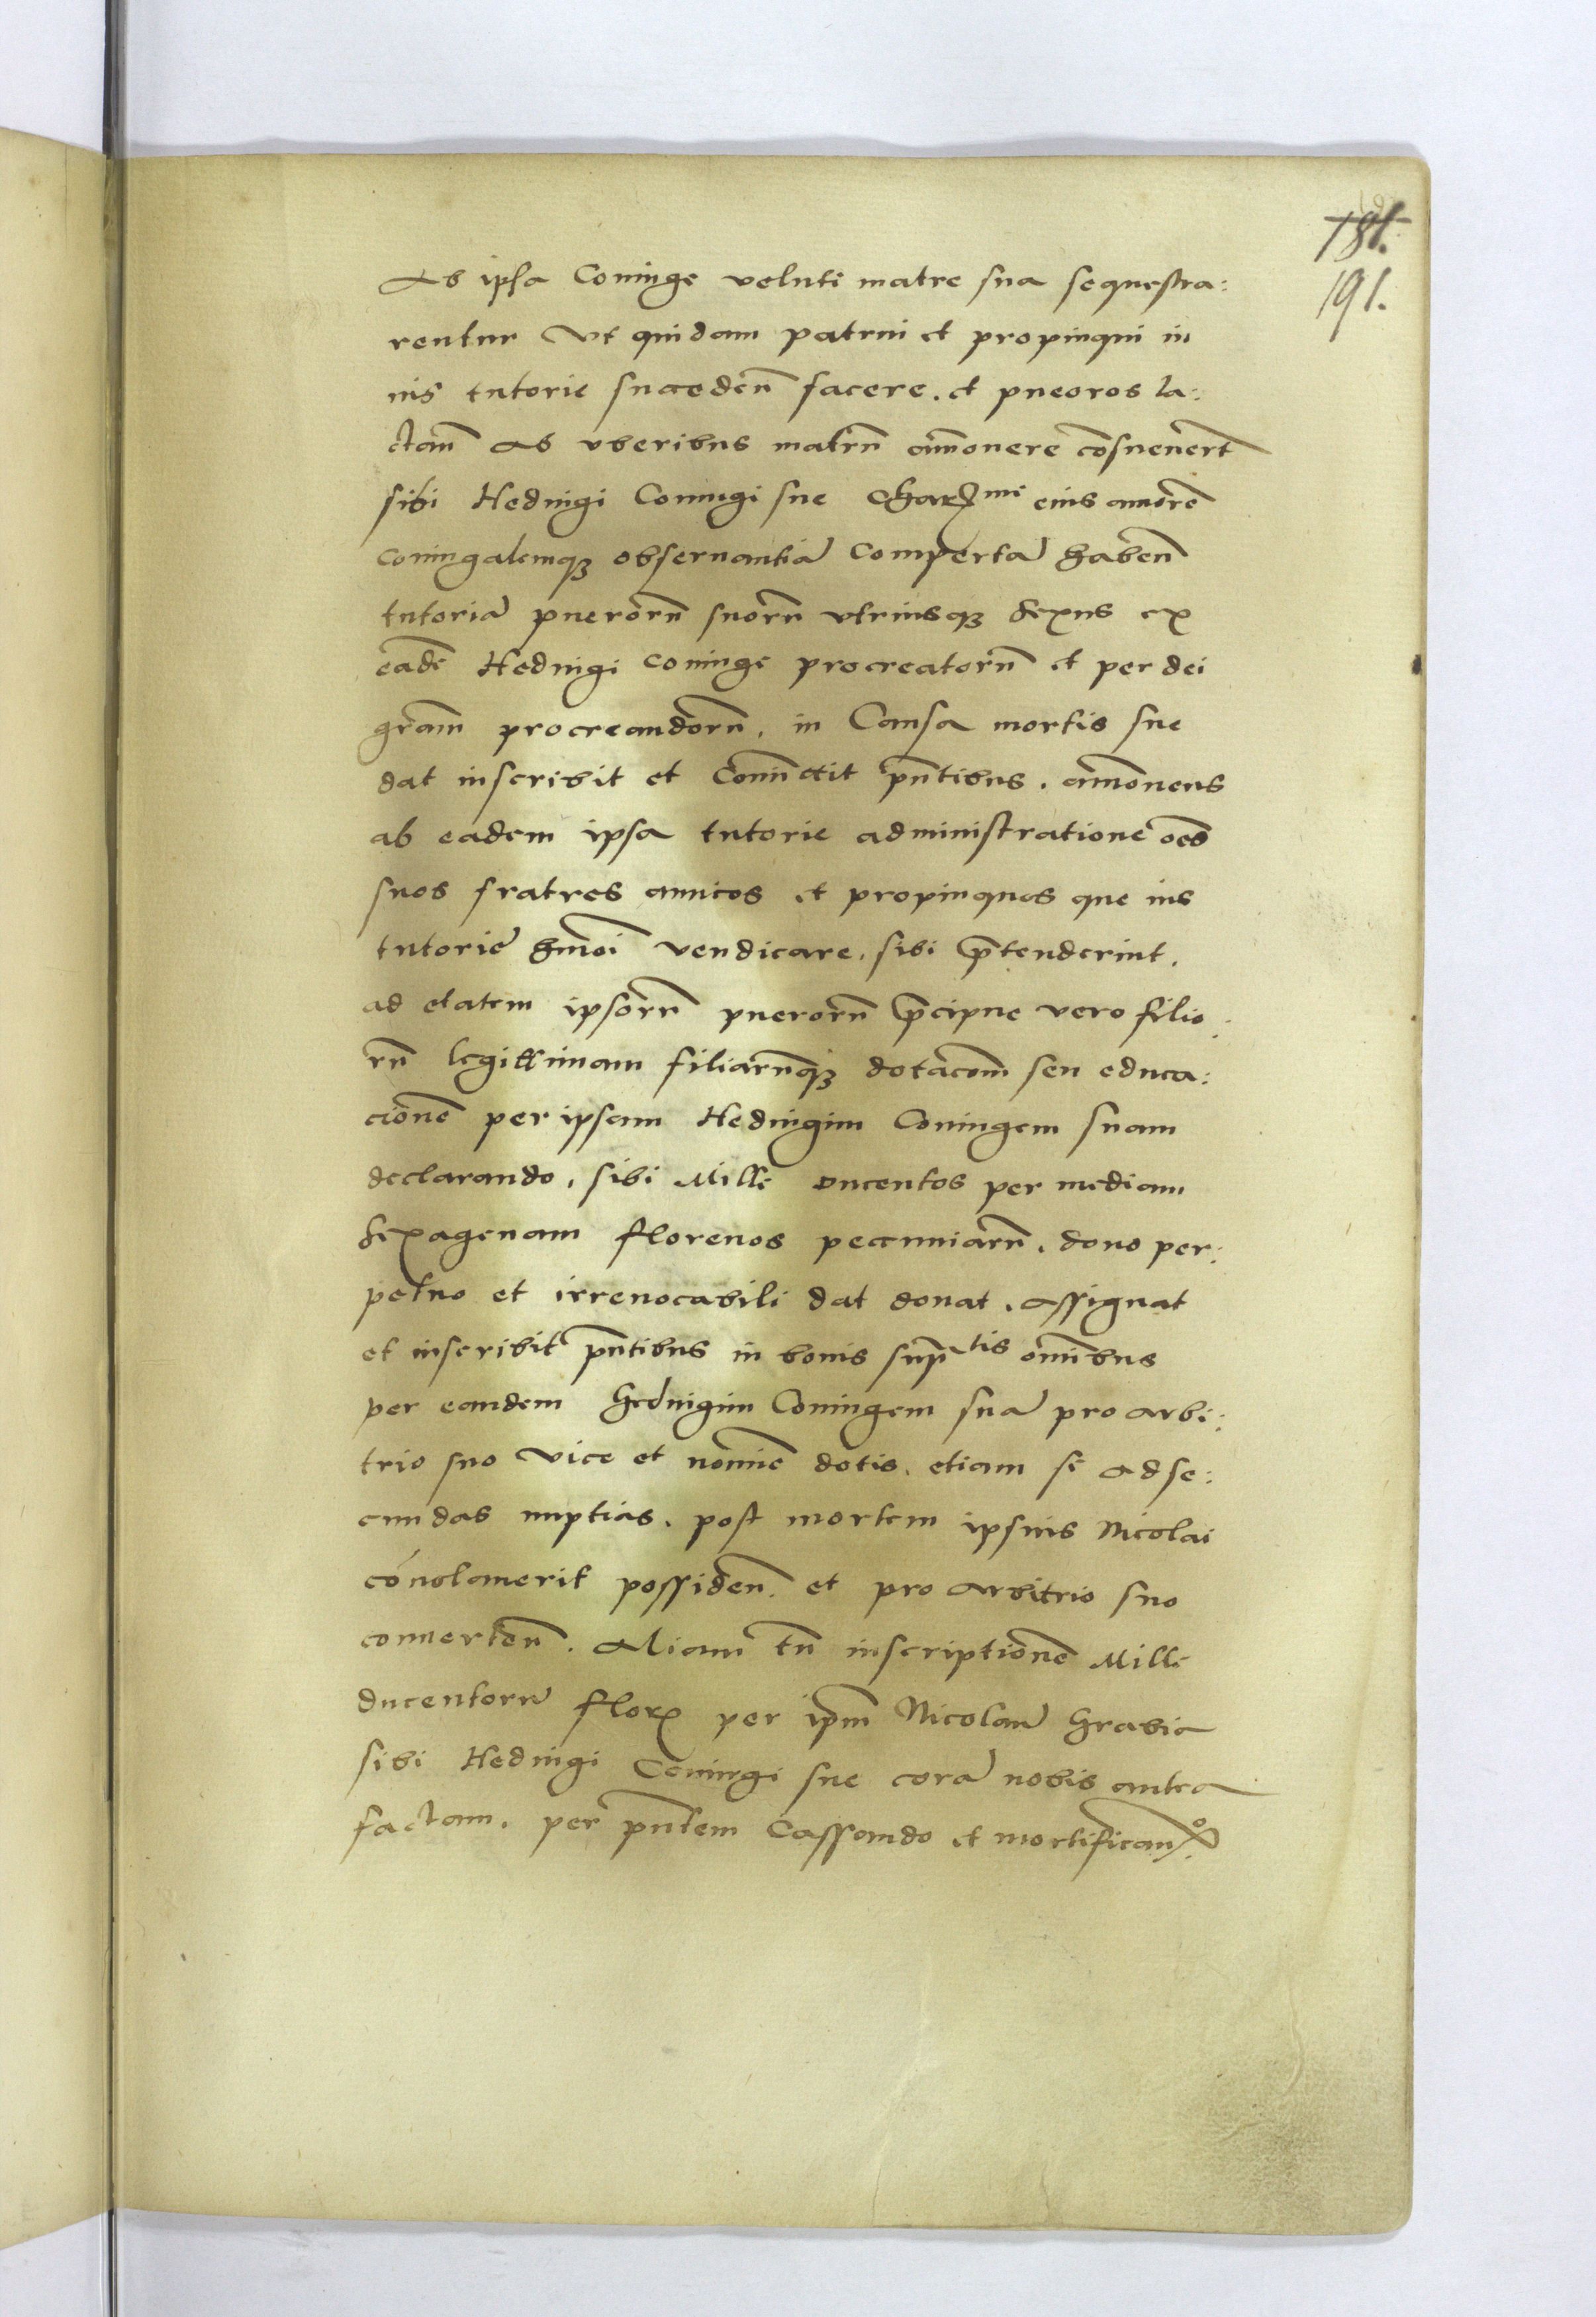 181.
191.
Ab ipsa Coniuge veluti matre sua sequestra:
rentur Vt quidam patrui et propinqui in
ius tutorie succeden̄ facere. et pueoros la:
ctan̄ ab vberibus matrū ammouere cōsueuert̄
sibi Heduigi Coniugi sue Char^mi eius amorē
coniugalemqꝫ obseruantiā compertā haben̄
tutoriā puerorū suorū vtriusqꝫ sexus ex
eadē Heduigi coniuge procreatorū et per dei
gram̄ procreandorū, in Causa mortis sue
dat inscribit et Com̄ittit pn̄tibus. am̄ouens
ab eadem ipsa tutorie administratione oēs
suos fratres amicos et propinquos que ius
tutorie hm̄oi vendicare, sibi p̄tenderint,
ad etatem ipsorū puerorū p̄cipue vero filio:
rū legittimam filiarūqꝫ dotacōm seu educa:
cionē per ipsam Heduigim Coniugem suam
declarando, sibi Mille Ducentos per mediam
sexagenam florenos pecuniarū, dono per:
petuo et irreuocabili dat donat, assignat
et inscribit pn̄tibus in bonis sup^tis om̄ibus
per eandem Heduigim Coniugem suā pro arbi:
trio suo Vice et nomīe dotis, etiam si ad se:
cundas nuptias, post mortem ipsius Nicolai
conuolauerit possiden̄. et pro arbitrio suo
conuerten̄. Aliam tn̄ inscriptionē Mille
ducentorū flor per ipm̄ Nicolaū Grabia
sibi Heduigi Coniugi sue corā nobis antea
factam, per pn̄tem Cassando et mortifican^o.